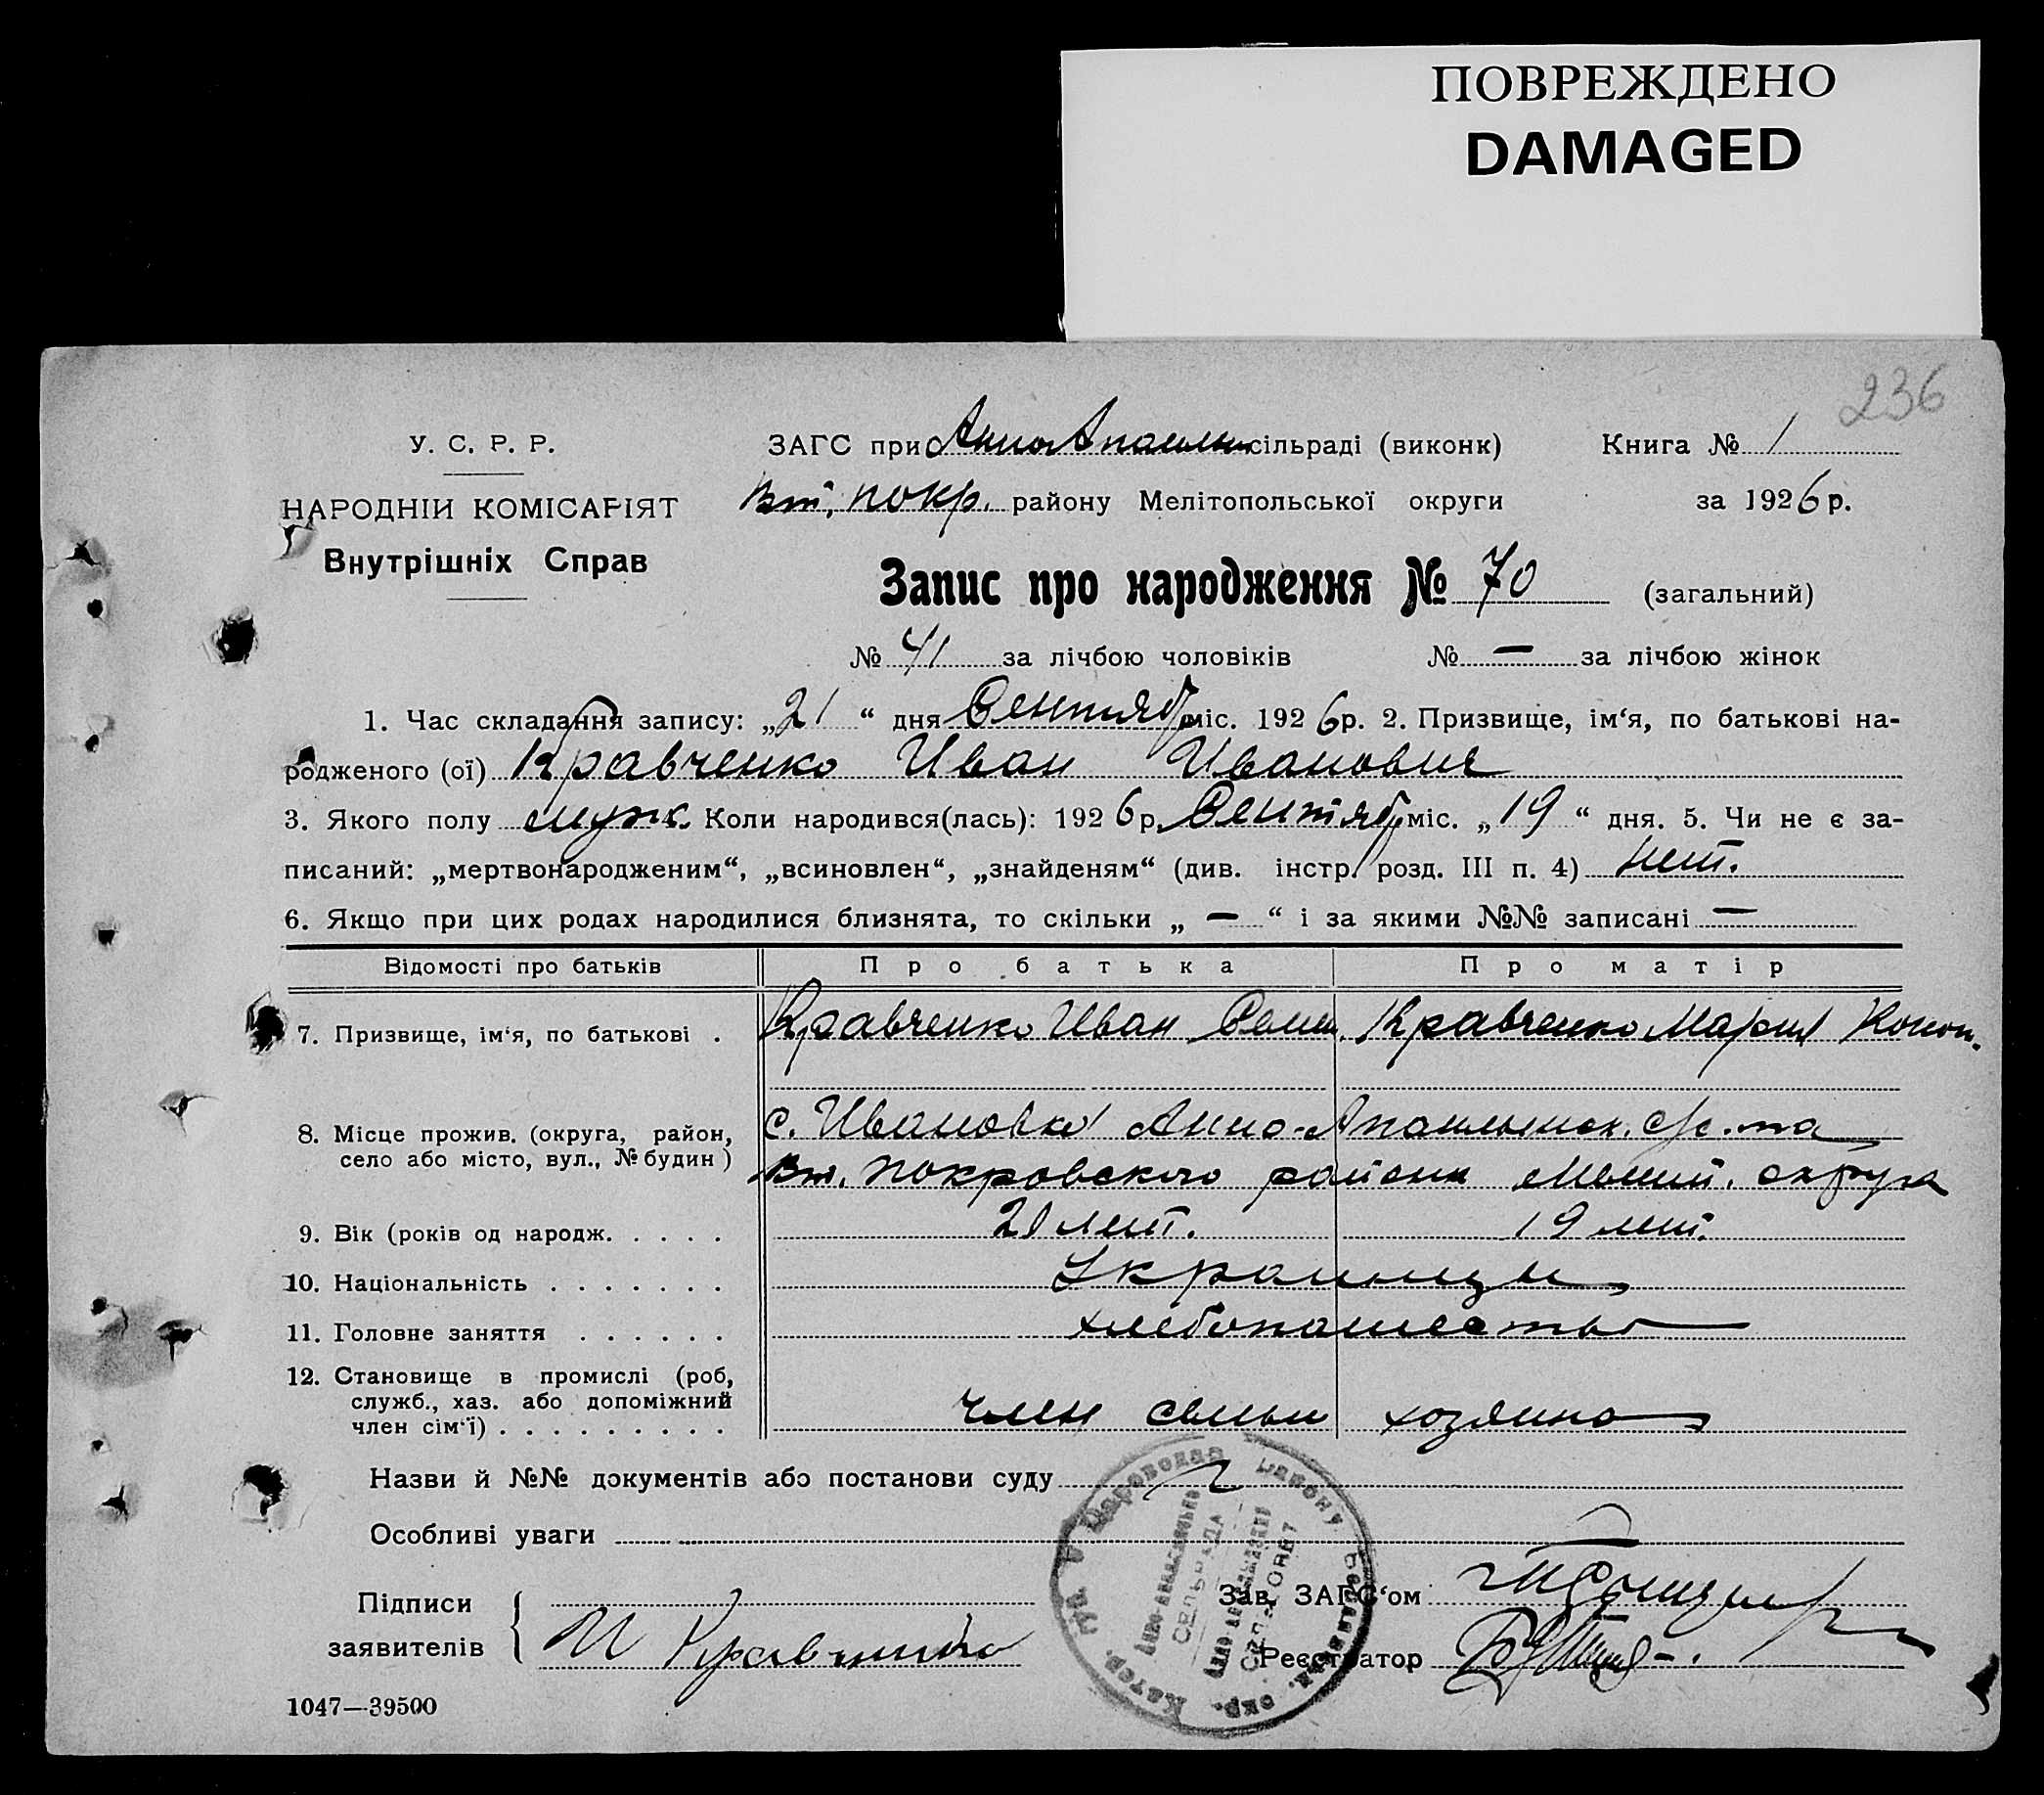 ПОВРЕЖДЕНО
DAMAGED
236
У. С. Р. Р.
ЗАГС при Анно сільраді (виконк)
Книга № 1
НАРОДНІЙ КОМІСАРІЯТ
Вт. покр. району Мелітопольської округи
за 1926 р.
Внутрішніх Справ
Запис про народження № 70 (загальний)
№ 41 за лічбою чоловіків № — за лічбою жінок
1. Час складання запису: „21“ дня Сентяб міс. 1926 р. 2. Призвище, ім‘я, по батькові на-
родженого (ої) Кравченко Иван Иванович
3. Якого полу муж. Коли народився(лась): 1926 р. Сентяб міс. „19“ дня. 5. Чи не є за-
писаний: „мертвонародженим“, „всиновлен“, „знайденям“ (див. інстр. розд. III п. 4) нет.
6. Якщо при цих родах народилися близнята, то скільки „ — “ і за якими №№ записані —
Відомості про батьків Про батька Про матір
7. Призвище, ім‘я, по батькові . Кравченко Иван Сем. Кравченко Мария Конон.
8. Місце прожив. (округа, район, с. Ивановка Анно-
село або місто, вул., № будин) Вт. Покровского района округа
9. Вік (років од народж. . . . . 21 лет. 19 лет.
10. Національність . . . . . . . Украинцы
11. Головне заняття . . . . . . хлебопашество
12. Становище в промислі (роб,
служб., хаз. або допоміжний
член сім‘ї) . . . . . . . . . член семьи хозяина
Назви й №№ документів або постанови суду
Особливі уваги
Підписи
заявителів
И Кравченко
Зав. ЗАГС‘ом
Реєстратор
СЕЛЬРАДА
1047—39500